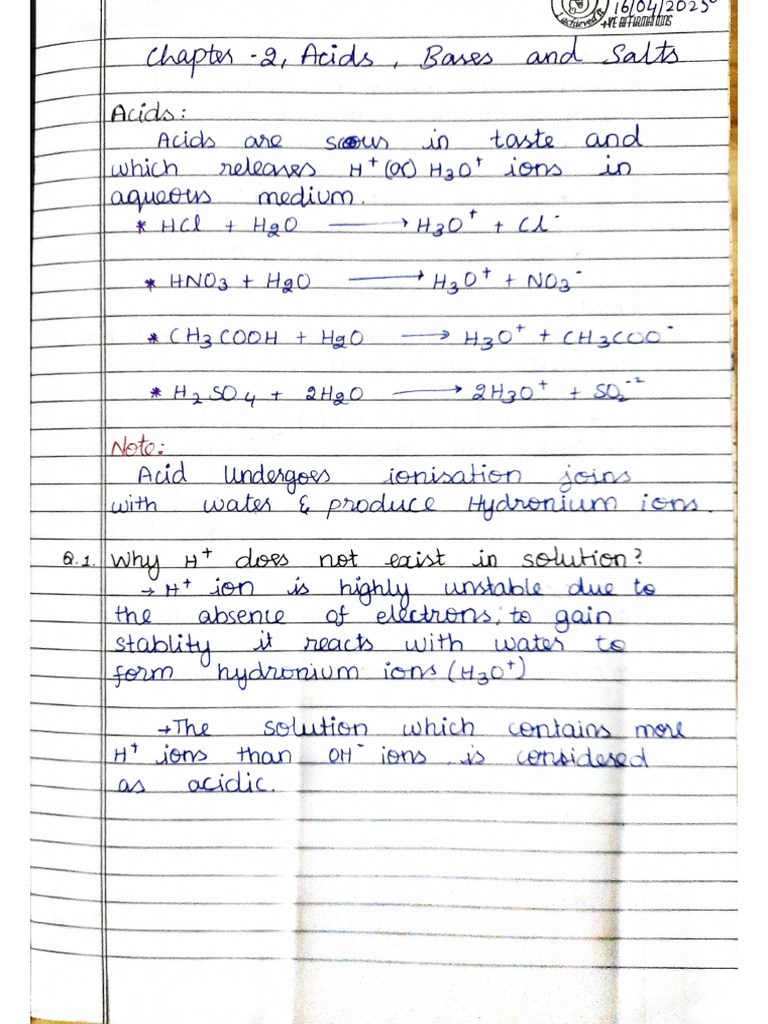 16/04/2025
achieved it
+VE AFFIRMATIONS
Chapter -2, Acids, Bases and Salts
Acids:
Acids are sour in taste and
which releases H⁺(or) H₃O⁺ ions in
aqueous medium.
* HCl + H₂O ⟶ H₃O⁺ + Cl⁻
* HNO₃ + H₂O ⟶ H₃O⁺ + NO₃⁻
* CH₃COOH + H₂O ⟶ H₃O⁺ + CH₃COO⁻
* H₂SO₄ + 2H₂O ⟶ 2H₃O⁺ + SO₂⁻²
Note:
Acid undergoes ionisation joins
with water & produce Hydronium ions.
Q.1. Why H⁺ does not exist in solution?
→ H⁺ ion is highly unstable due to
the absence of electrons, to gain
stablity it reacts with water to
form hydronium ions (H₃O⁺)
→ The solution which contains more
H⁺ ions than OH⁻ ions is considered
as acidic.